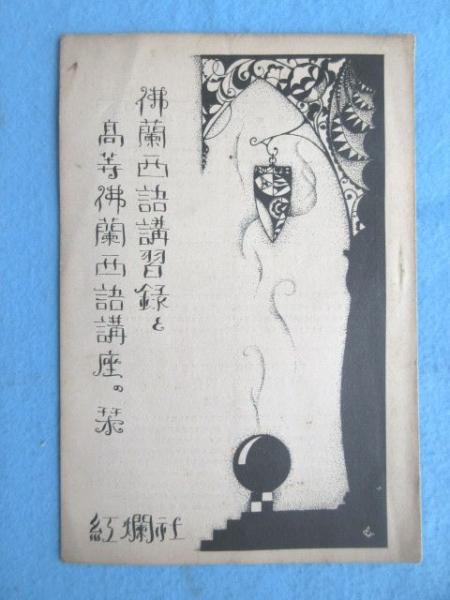 佛蘭西語講習録と
高等佛蘭西語講座の栞
紅爛社